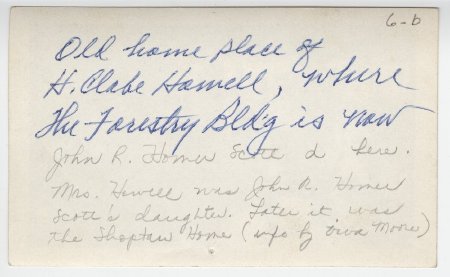 6-b
Old home place of
H. Clabe Howell, where
The Forestry Bldg is now
John R. Homer Scott d here.
Mrs. Howell was John R. Homer
Scott's daughter. Later it was
the Shoptaw Home (info by Moore)